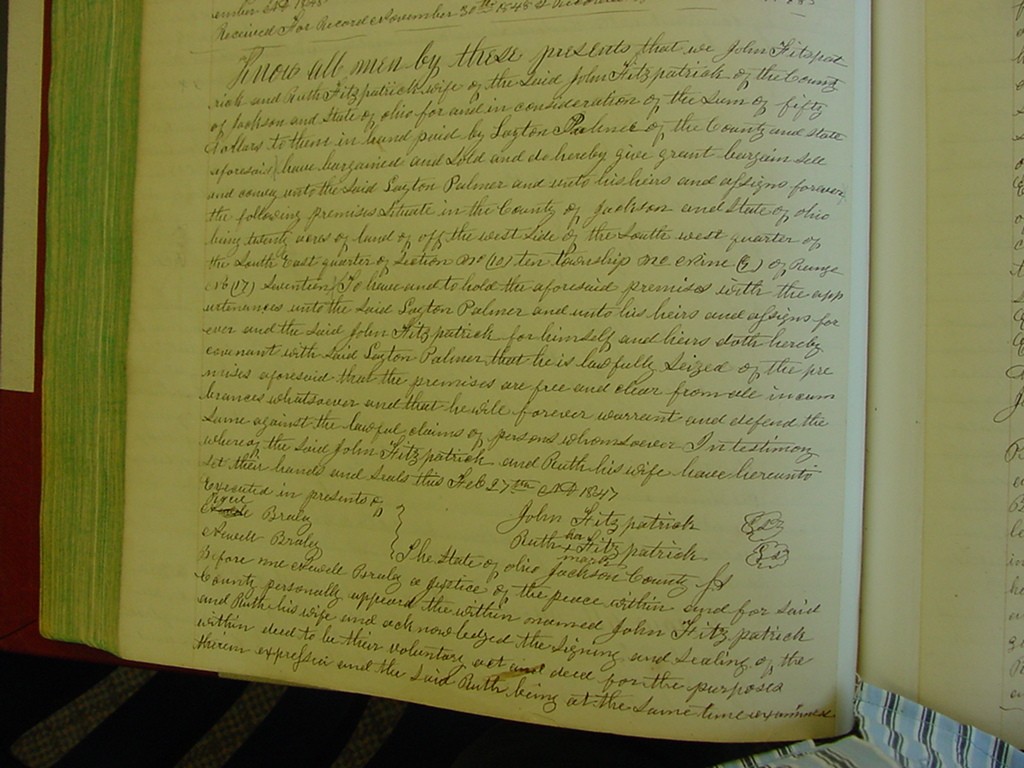 ember
Received For Record November 30th 1848 & Recorded
Know all men by these presents that we John Fitzpat
rick and Ruth Fitzpatrick wife of the Said John Fitzpatrick of the County
of Jackson and State of ohio for and in consideration of the Sum of fifty
Dollars to them in hand paid by Layton Palmer of the County and state
aforesaid have bargained and Sold and do hereby give grant bargain Sell
and convey unto the Said Layton Palmer and unto his heirs and assigns forever
the following premises Situate in the County of Jackson and State of ohio
being twenty acres of land of off the west Side of the South west quarter of
the South East quarter of Section No (10) ten Township No of Range
No (17) Seventeen To have and to hold the aforesaid premises with the app
urtenances unto the Said Layton Palmer and unto his heirs and assigns for
ever and the Said John Fitzpatrick for himself and heirs doth hereby
covenant with Said Layton Palmer that he is lawfully Seized of the pre
mises aforesaid that the premises are free and clear from all incum
brances whatsoever and that he will forever warrant and defend the
Same against the lawful claims of persons whomsoever In testimony
whereof the Said John Fitzpatrick and Ruth his wife have hereunto
Set their hands and Seals this Feb 27th AD 1847
Executed in presents of
Braley John Fitzpatrick
Newell Braley Ruth her x mark Fitzpatrick
The State of ohio Jackson County SS
Before me Newell Braley a Justice of the peace within and for Said
County personally appeared the within named John Fitzpatrick
and Ruth his wife and acknowledged the Signing and Sealing of the
within deed to be their voluntary act and deed for the purposes
therein expressed and the Said Ruth being at the Same time examined